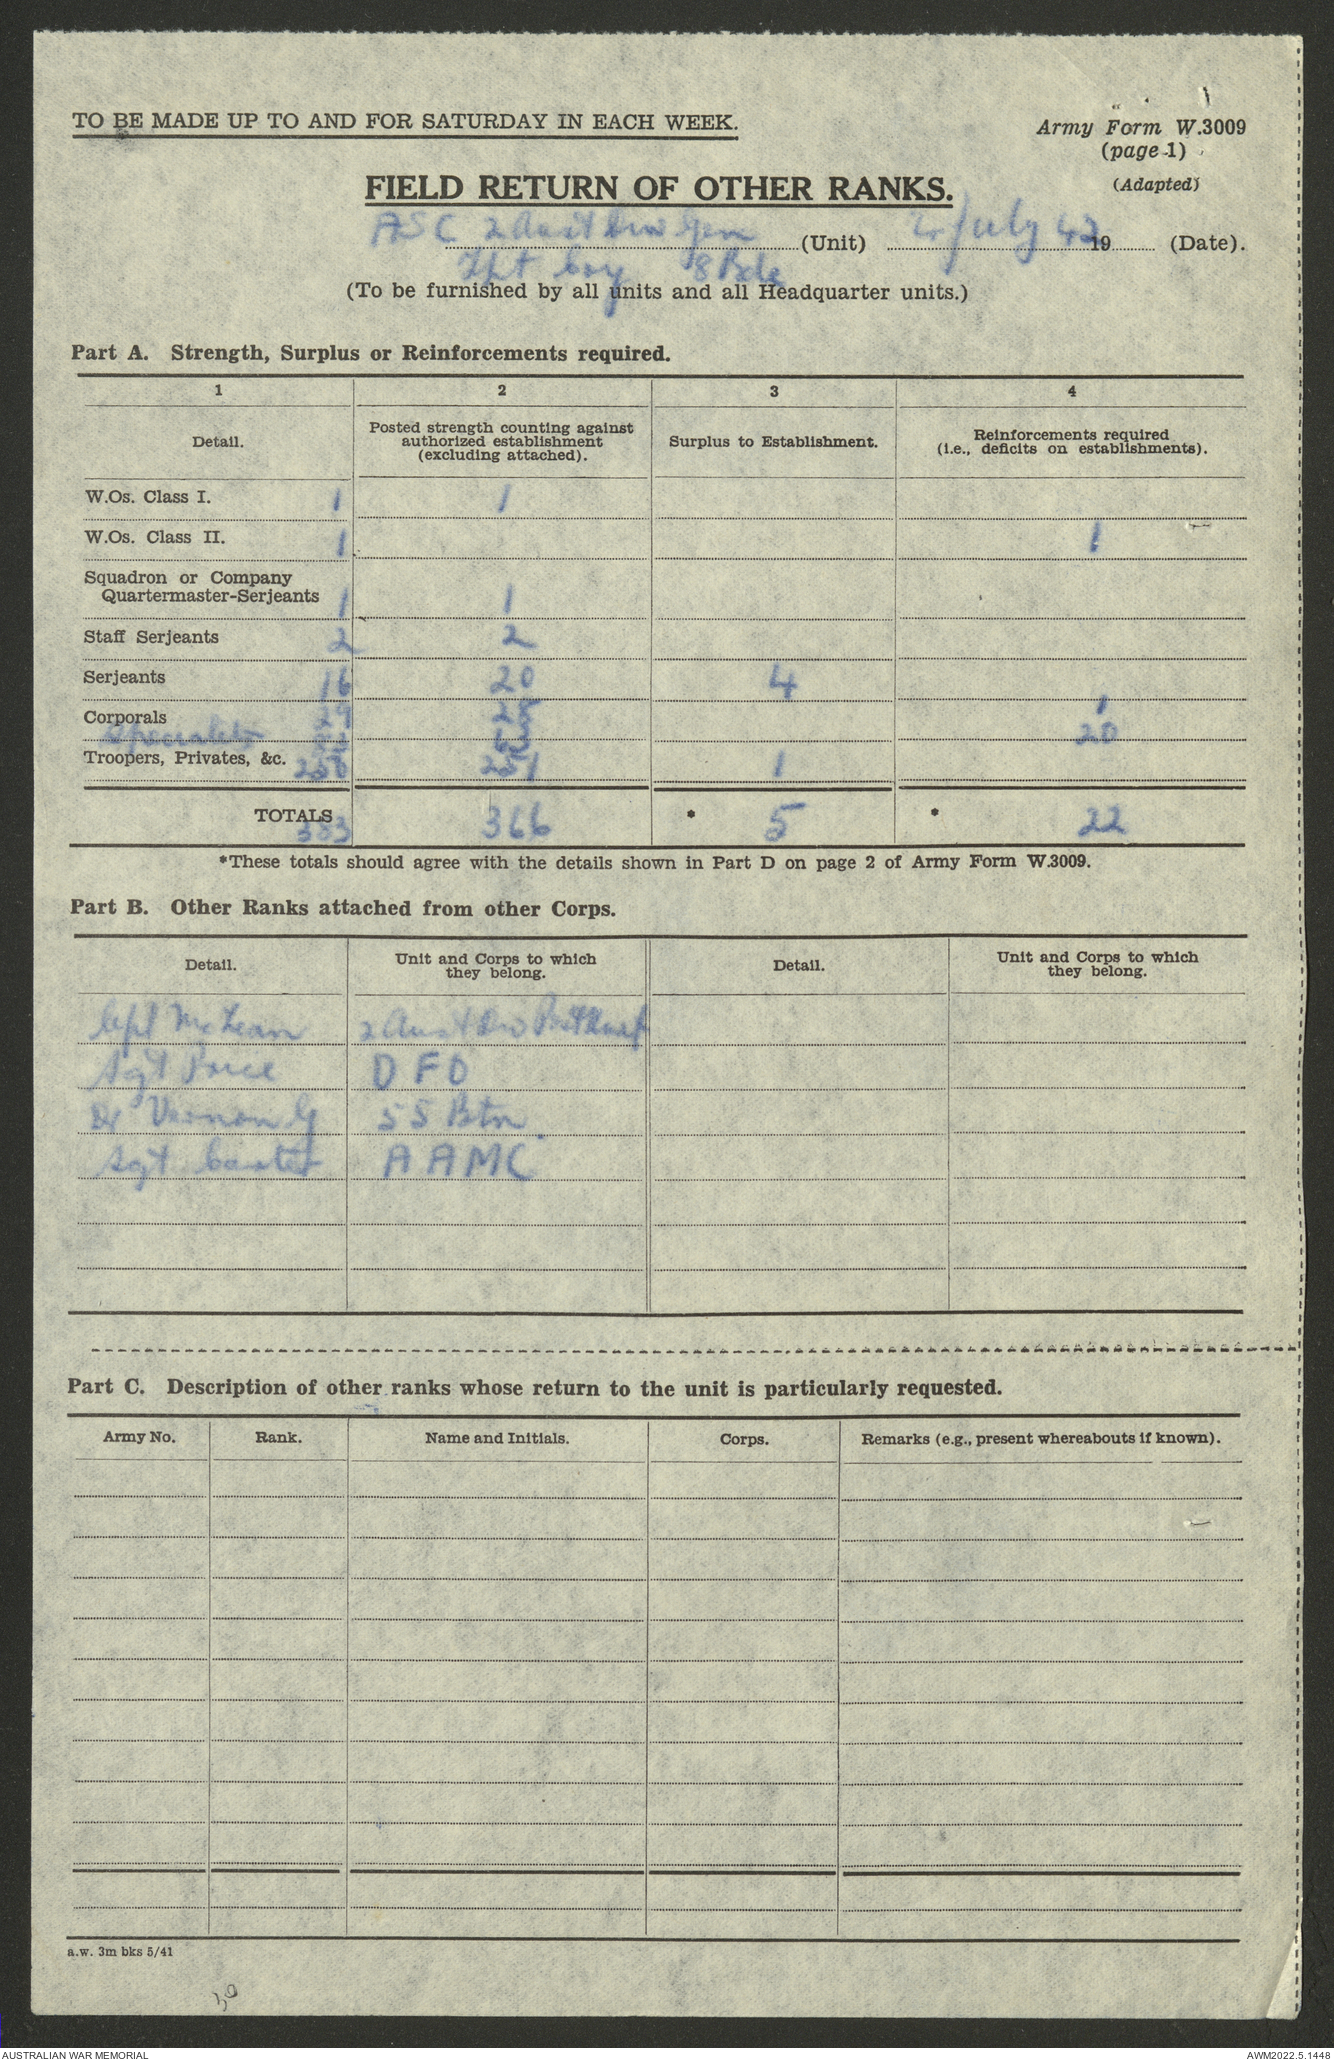 TO BE MADE UP TO AND FOR SATURDAY IN EACH WEEK.
Army Form W.3009
(page 1)
(Adapted)
FIELD RETURN OF OTHER RANKS.
ASC 2 Aust Div Gen (Unit) 4 July 42 19 (Date).
Tpt Coy 8 Bde
(To be furnished by all units and all Headquarter units.)
Part A. Strength, Surplus or Reinforcements required.
1 2 3 4
Detail.
Posted strength counting against
authorized establishment
(excluding attached).
Surplus to Establishment.
Reinforcements required
(i.e., deficits on establishments).
W.Os. Class I. 1 1
W.Os. Class II. 1 1
Squadron or Company
Quartermaster-Serjeants 1 1
Staff Serjeants 2 2
Serjeants 16 20 4
Corporals 29 28 1
Specialists 20
Troopers, Privates, &c. 250 251 1
TOTALS 383 366 * 5 * 22
*These totals should agree with the details shown in Part D on page 2 of Army Form W.3009.
Part B. Other Ranks attached from other Corps.
Detail.
Unit and Corps to which
they belong.
Detail.
Unit and Corps to which
they belong.
Cpl McLean 2 Aust Div
Sgt DFO
Dr Vernon G 55 Btn
Sgt AAMC
Part C. Description of other ranks whose return to the unit is particularly requested.
Army No. Rank. Name and Initials. Corps. Remarks (e.g., present whereabouts if known).
a.w. 3m bks 5/41
30
AUSTRALIAN WAR MEMORIAL AWM2022.5.1448